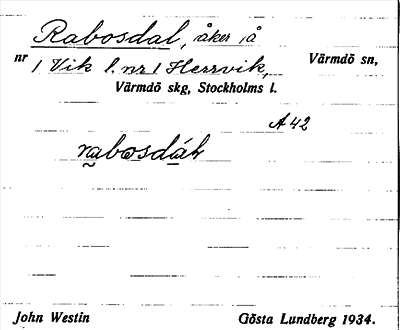 Rabosdal, åker å
nr 1 Vik l. nr 1 Herrvik, Värmdö sn,
Värmdö skg, Stockholms l.
A 42
John Westin Gösta Lundberg 1934.